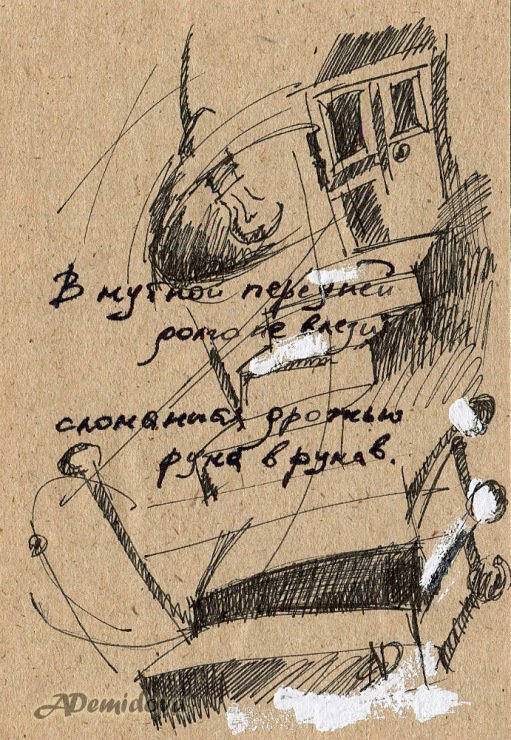 В мутной передней
долго не влезит
сломанная дрожью
рука в рукав.
AD
ADemidova